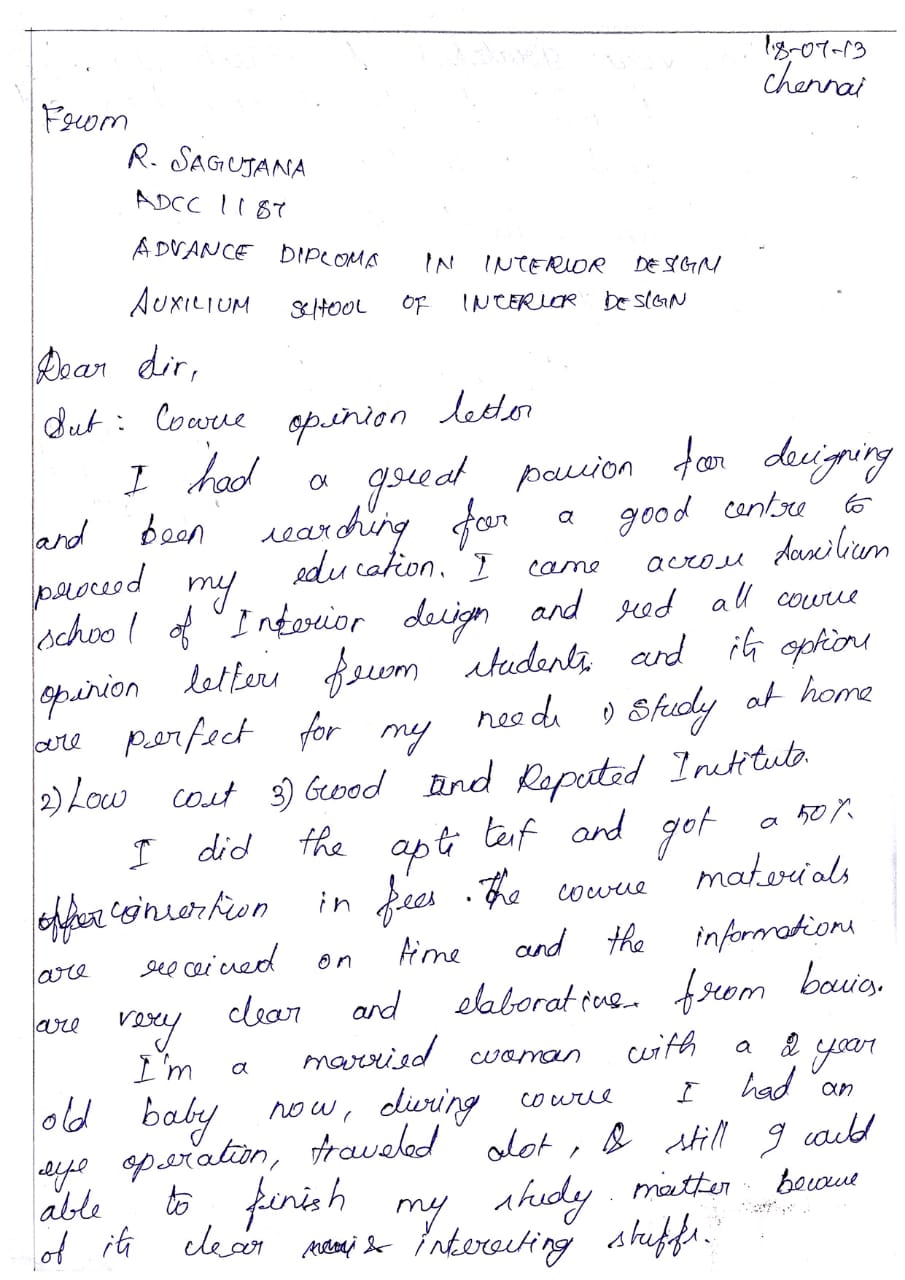 18-07-13
Chennai
From
R. SAGUJANA
ADCC 1187
ADVANCE DIPLOMA IN INTERIOR DESIGN
AUXILIUM SCHOOL OF INTERIOR DESIGN
Dear Sir,
Sub: Course opinion letter
I had a great passion for designing
and been searching for a good centre to
proceed my education. I came across Auxilium
school of Interior design and red all course
opinion letters from students. and its options
are perfect for my needs 1) Study at home
2) Low cost 3) Good and Reputed Institute.
I did the apti test and got a 50%
in fees. The course materials
are received on time and the informations
are very clear and elaborative from basics.
I'm a married woman with a 2 year
old baby now, during course I had an
eye operation, traveled alot, & still I could
able to finish my study matter because
of its clear & interesting stuffs.